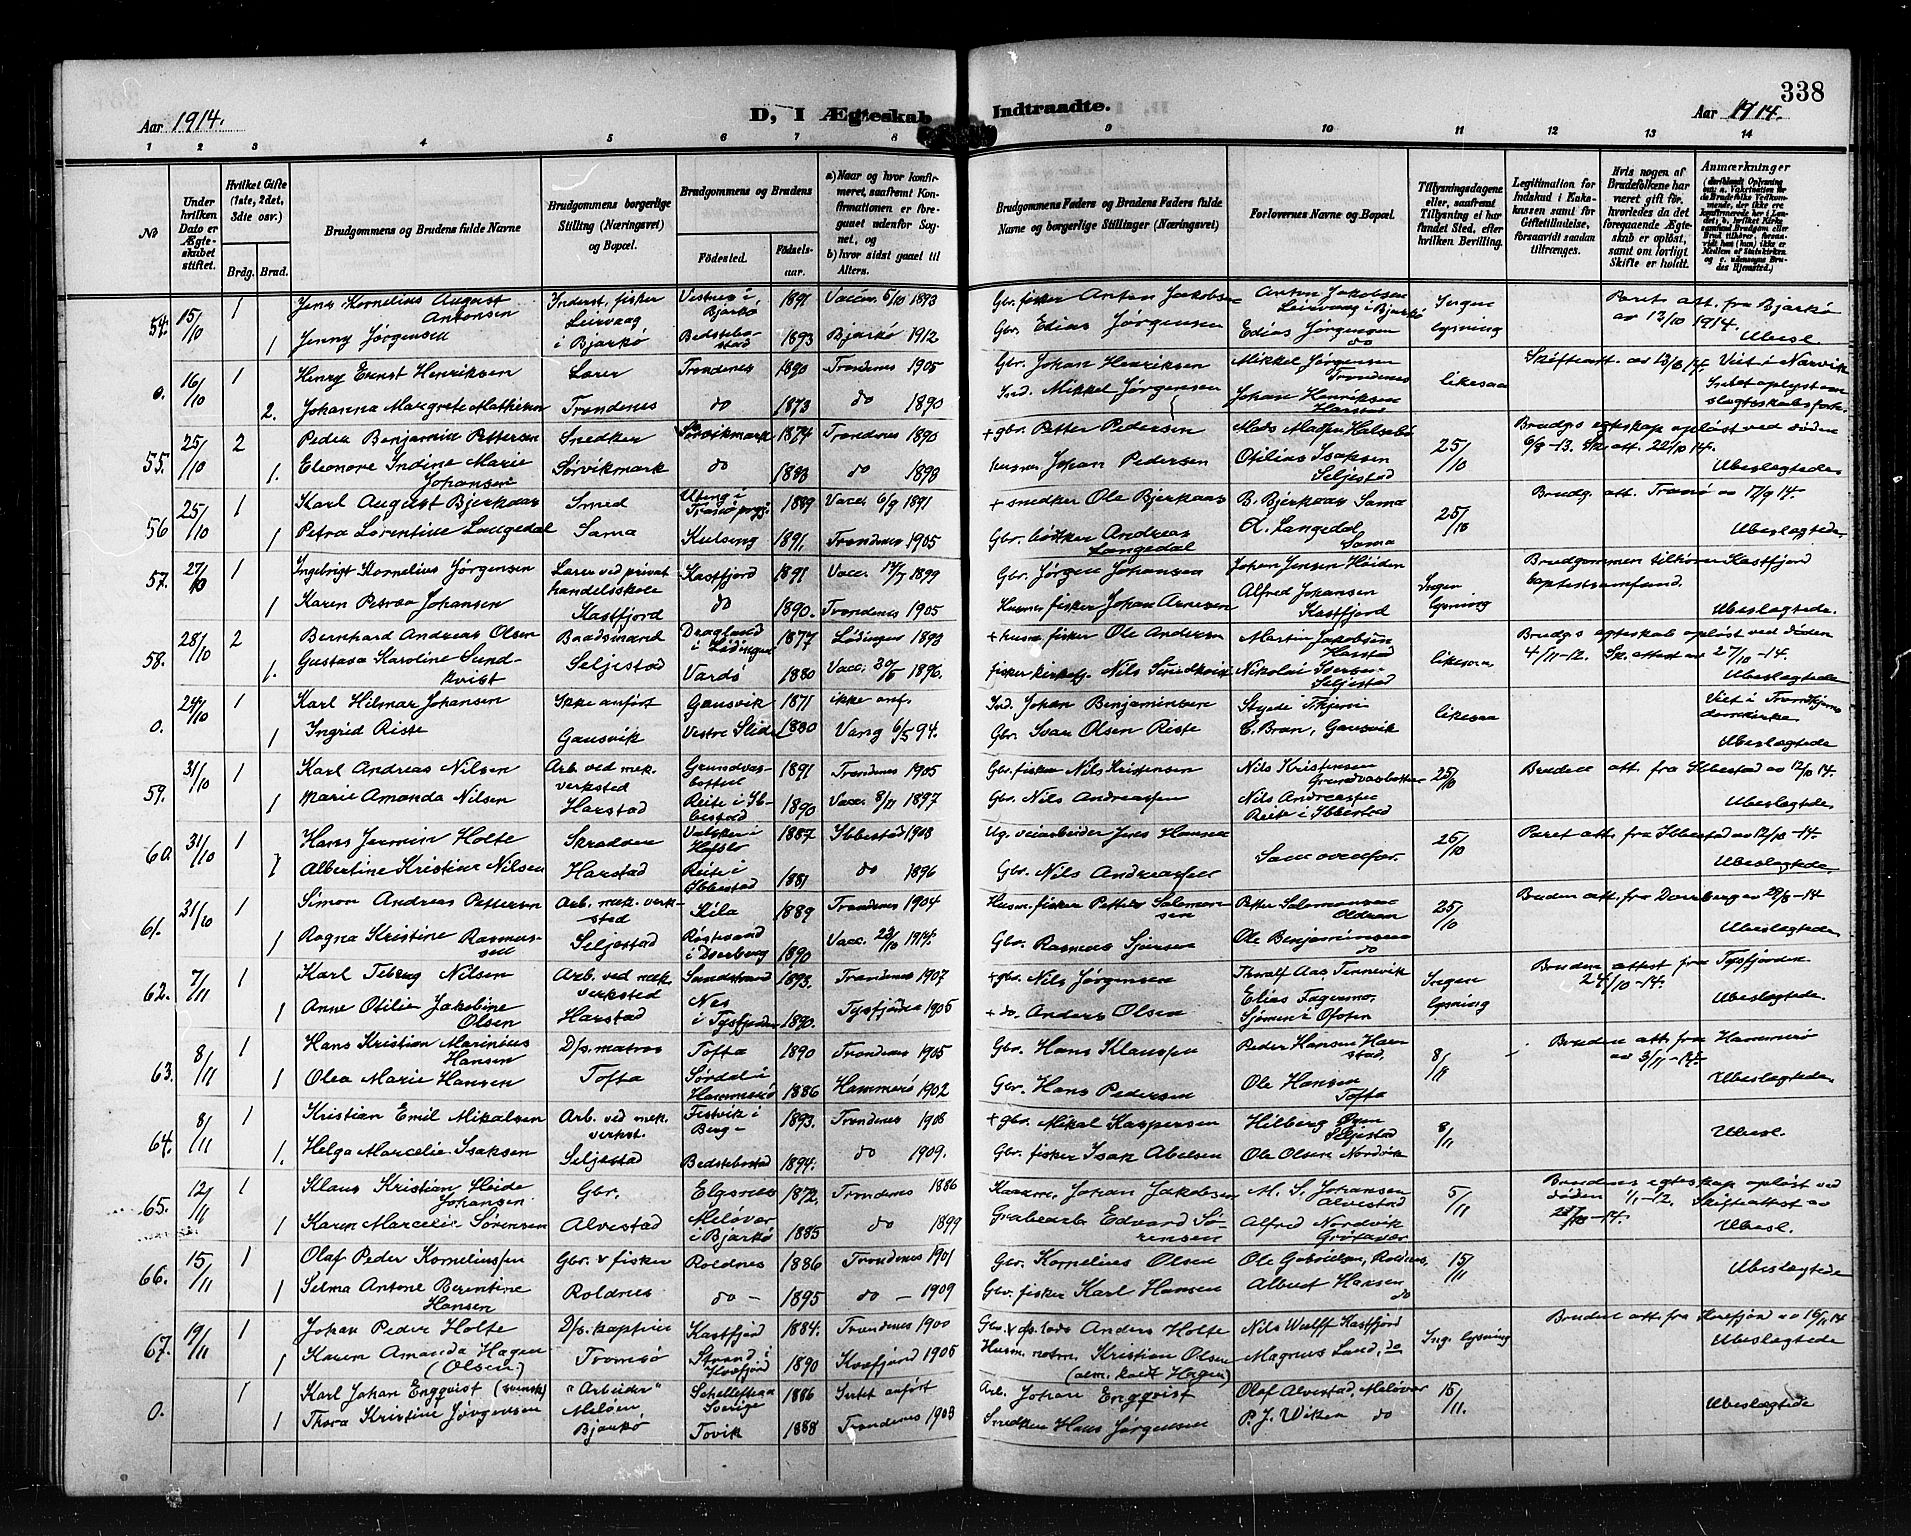 338
Aar 1914.
D, I Ægteskab Indtraadte.
Aar 1914.
1 2 3 4 5 6 7 8 9 10 11 12 13 14
No
Under hvilken Dato er Ægteskabet stiftet.
Hvilket Gifte (1ste, 2det, 3die osv.)
Brdg. Brud.
Brudgommens og Brudens fulde Navne
Brudgommens borgerlige Stilling (Næringsvei) og Bopæl.
Brudgommens og Brudens
Fødested.
Fødselsaar.
a) Naar og hvor konfirmeret, saafremt Konfirmationen er foregaaet udenfor Sognet, og
b) hvor sidst gaaet til Alters.
Brudgommens Faders og Brudens Faders fulde Navne og borgerlige Stillinger (Næringsvei)
Forlovernes Navne og Bopæl.
Tillysningsdagene eller, saafremt Tillysning ei har fundet Sted, efter hvilken Bevilling.
Legitimation for Indskud i Enkekassen samt for Giftetilladelse, forsaavidt saadan tiltrænges.
Hvis nogen af Brudefolkene har været gift før, hvorledes da det foregaaende Ægteskab er opløst, samt om lovligt Skifte er holdt.
Anmærkninger
54. 15/10 1 Jens Kornelius August Antonsen Inderst, fisker Leirvaag i Bjarkø Vestnes i Bjarkø 1891 Vacc. 5/10 1893 Gbr. fisker Anton Jakobsen Anton Jakobsen Leirvaag i Bjarkø Ingen lysning Paret att. fra Bjarkø av 12/10 1914.
1 Jenny Jørgensen Bedstebostad 1893 Bjarkø 1912 Gbr. Edias Jørgensen Edias Jørgensen do Ubesl.
0. 16/10 1 Henry Ernst Henriksen Lærer Trondenes 1890 Trondenes 1905 Gbr. Johan Henriksen Mikkel Jørgensen Trondenes likesaa Skifteatt. av 13/8 14. Viet i Narvik
2. Johanna Margrete Mathisen Trondenes do 1873 do 1890 Ind. Mikkel Jørgensen Johan Henriksen Harstad
55. 25/10 2 Peder Benjamin Pettersen Snedker Sørvikmark 1874 Trondenes 1890 + gbr. Petter Pedersen 25/10 Brudgs egteskap opløst ved døden 6/8-13. Sk. att. 22/10 14.
1. Eleonore Indine Marie Johansen Sørvikmark do 1883 do 1898 husm. Johan Pedersen Otilius Isaksen Seljestad Ubeslægtede
56 25/10 1 Karl August Bjerkaas Smed 1889 Vacc. 6/9 1891 + snedker Ole Bjerkaas B. Bjerkaas Sama 25/10 Brudg. att. Tranø av 17/9 14.
1 Petra Lorentine Langedal Sama Kulseng 1891. Trondenes 1905 Gbr. bødker Andreas Langedal A. Langedal Sama Ubeslægtede.
57. 27/10 1 Ingebrigt Kornelius Jørgensen Lærer ved privat handelsskole Kastfjord 1891 Vacc. 1899 Gbr. Jørgen Johansen Johan Jensen Heiden Ingen lysning Brudgommen tilhører Kastfjord baptistsamfund.
1 Karen Petrea Johansen Kastfjord do 1890. Trondenes 1905 Husm. fisker Johan Arnesen Alfred Johansen Kastfjord Ubeslægtede.
58. 28/10 2 Bernhard Andreas Olsen Baadsmand Dragland i Lødingen 1877 Lødingen 1893 + husm. fisker Ole Andersen Martin Jakobsen Harstad likesaa Brudgs egteskab opløst ved døden 4/11-12. Sk. attest av 27/10-14.
1. Gustava Karoline Sundkvist Seljestad Vardø 1880 Vacc. 1896. fisker kirketj. Nils Sundkvist Nikolai Iversen Seljestad Ubeslægtede
0. 29/10 1 Karl Hilmar Johansen Ikke anført Gausvik 1871 ikke anf. Ind. Johan Benjaminsen likesaa Viet i Trondhjems domkirke.
1 Ingrid Riste Gausvik Vestre Slidre 1880 Vang 6/5 94. Gbr. Ivar Olsen Riste E. Bran, Gausvik Ubeslægtede
59. 31/10 1 Karl Andreas Nilsen Arb. ved mek. verksted Grundvasbotten 1891 Trondenes 1905 Gbr. fisker Nils Kristensen Nils Kristensen Grundvasbotten 25/10 Bruden att. fra Ibbestad av 12/10 14.
1 Marie Amanda Nilsen Harstad Reite i Ibbestad 1890 Vacc. 1897 Gbr. Nils Andreassen Nils Andreassen Reite i Ibbestad Ubeslægtede
60. 31/10 1 Hans Jermin Holte Skrædder 1887 Ibbestad 1908 Ug. veiarbeider Jens Hansen Som ovenfor. 25/10 Paret att. fra Ibbestad av 12/10-14.
1 Albertine Kristine Nilsen Harstad Reite i Ibbestad 1881 do 1896 Gbr. Nils Andreassen Ubeslægtede.
61. 31/10 1 Simon Andreas Pettersen Arb. mek. verksted Kila 1889 Trondenes 1904 Husm. fisker Petter Salomonsen Petter Salomonsen Aldran 25/10 Bruden att. fra Dverberg av 29/8-14
1 Ragna Kristine Rasmussen Seljestad Røstesand i Dverberg 1890 Vacc. 23/10 1914. Gbr. Rasmus Sjursen Ole Benjaminsen do Ubeslægtede
62. 7/11 1 Karl Teberg Nilsen Arb. ved mek. verksted Sandstrand 1893. Trondenes 1907 + gbr. Nils Jørgensen Thoralf Aas Tennevik Ingen lysning Bruden attest fra Tysfjorden 24/10-14.
1 Anne Otilie Jakobine Olsen Harstad Nes i Tysfjorden 1890. Tysfjorden 1905 + do. Anders Olsen Elias Fagermo, Sjømen i Ofoten Ubeslægtede.
63. 8/11 1 Hans Kristian Marinius Hansen D/s. matros Tofta 1890 Trondenes 1905 Gbr. Hans Klaussen Peder Hansen Harstad. 8/11 Bruden att. fra Hammerø av 3/11-14.
1 Olea Marie Hansen Tofta Sørdal i Hammerø 1886 Hammerø 1902 Gbr. Hans Pedersen Ole Hansen Tofta Ubeslægtede.
64. 8/11 1 Kristian Emil Mikalsen Arb. ved mek. verkst. Finvik i Berg 1893. Trondenes 1908 + gbr. Mikal Kaspersen Hilberg Seljestad 8/11
1. Helga Marcelie Isaksen Seljestad Bedstebostad 1894. do 1909. Gbr. fisker Isak Abelsen Ole Olsen Nordvik Ubesl.
65. 12/11 1 Klaus Kristian Heide Johansen Gbr. Elgsnes 1872. Trondenes 1886 Johan Jakobsen M. S. Johansen Alvestad 5/11 Brudens egteskap opløst ved døden 1/1-12. Skifteattest av 28/10-14.
1 Karen Marcelie Sørensen Alvestad Meløvær i Bjarkø 1885 do 1899 Grubearb. Edvard Sørensen Alfred Nordvik Grøtavær Ubesl.
66. 15/11 1 Olaf Peder Korneliussen Gbr. & fisker Roldnes 1886 Trondenes 1901 Gbr. Kornelius Olsen Ole Gabrielsen, Roldnes, 15/11
1 Selma Antone Berentine Hansen Roldnes do - 1895 do - 1909 Gbr. fisker Karl Hansen Albert Hansen do Ubeslægtede
67. 19/11 1 Johan Peder Holte D/s. kaptein Kastfjord 1884. Trondenes 1900 Gbr. & ds. lods Anders Holte Nils Wulff Kastfjord Ing. lysning Bruden att. fra Kvæfjord av 16/11 14
1 Karen Amanda Hagen (Olsen) Tromsø Strand i Kvæfjord 1890 Kvæfjord 1905 Husm. Kristian Olsen (alm. kaldt Hagen) Magnus Lund, do Ubeslægtede
0. 1 Karl Johan Engqvist (svensk) "Arbeider" Schelleftea Sverige 1886 Intet anført Arb. Johan Engqvist Olaf Alvestad, Meløvær 15/11.
1 Thora Kristine Jørgensen Meløen Bjarkø Tovik 1888 Trondenes 1903 Snedker Hans Jørgensen P. J. Wiken do Ubeslægtede